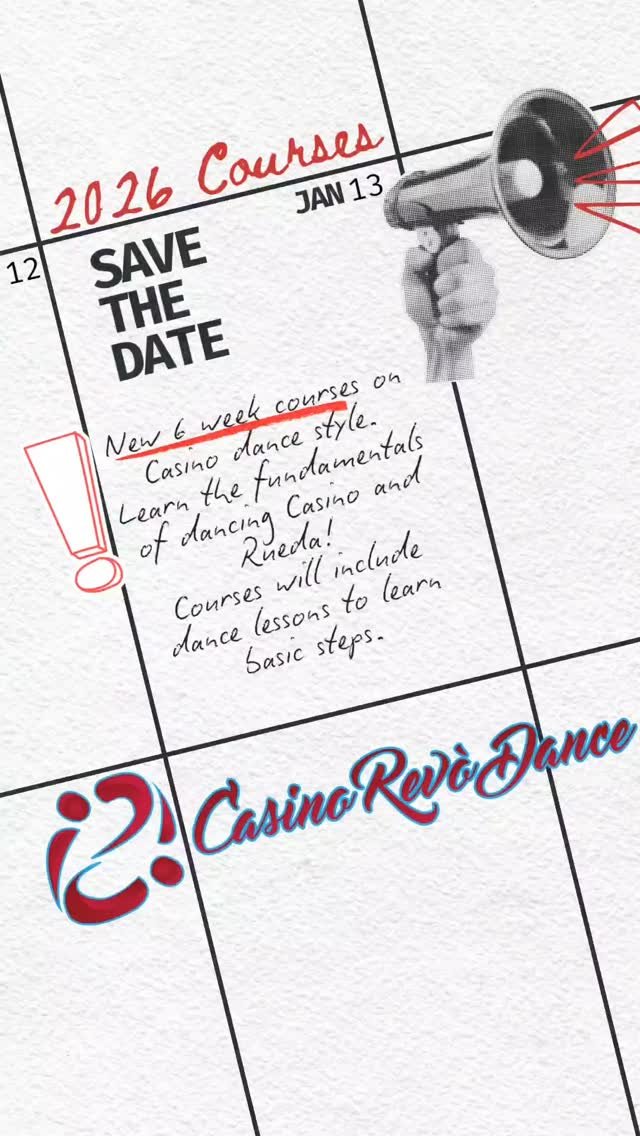 2026 Courses
JAN 13
12
SAVE
THE
DATE
New 6 week courses on
Casino dance style.
Learn the fundamentals
of dancing Casino and
Rueda!
Courses will include
dance lessons to learn
basic steps.
CasinoRevòDance